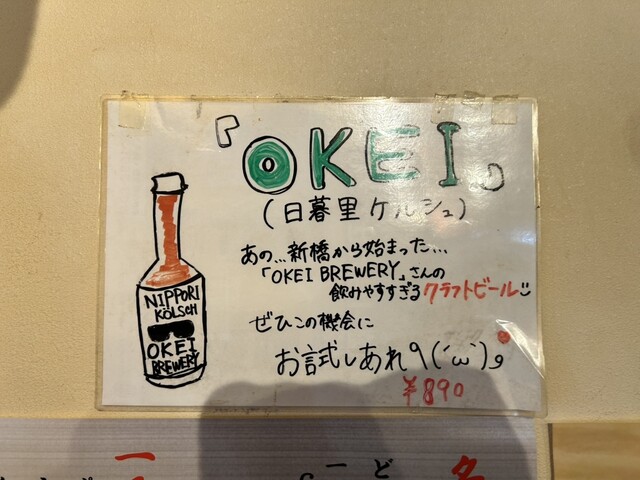 『OKEI』
(日暮里ケルシュ)
あの...新橋から始まった...
「OKEI BREWERY」さんの
飲みやすすぎるクラフトビール
ぜひこの機会に
お試しあれ٩(´ω`)و
¥890
NIPPORI
KÖLSCH
OKEI
BREWERY